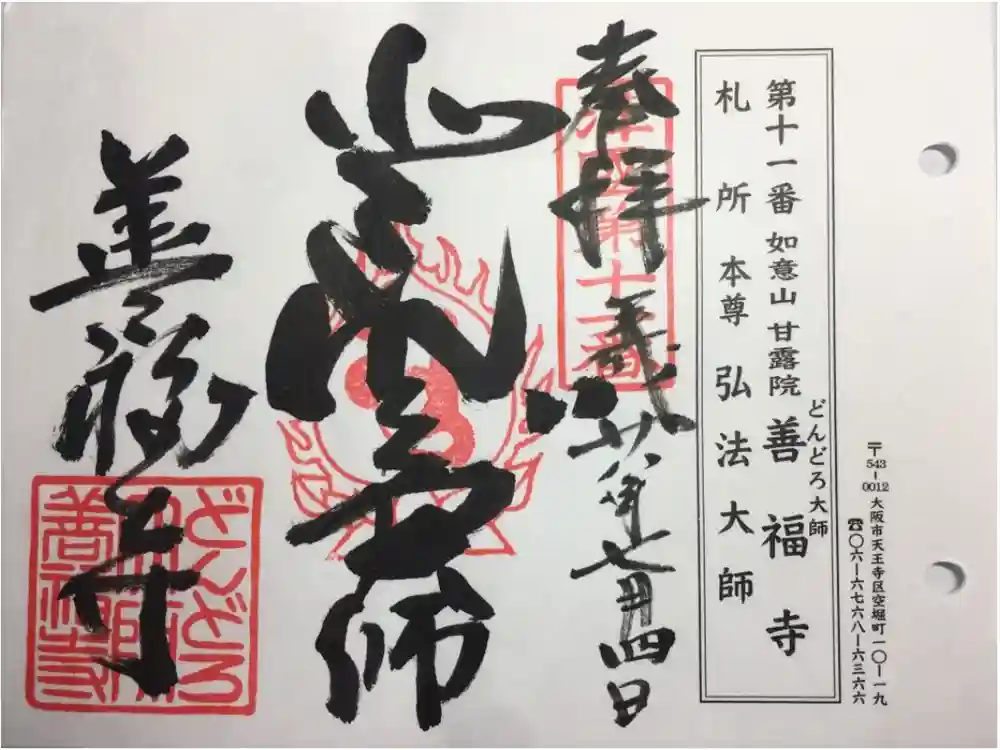 〒543-0012 大阪市天王寺区空堀町一〇ー一九
☎〇六ー六七六八ー六三六六
どんどろ大師
第十一番 如意山 甘露院 善福寺
札所本尊 弘法大師
奉拝
平成廿八年七月四日
善福寺
どんどろ
大師
善福寺